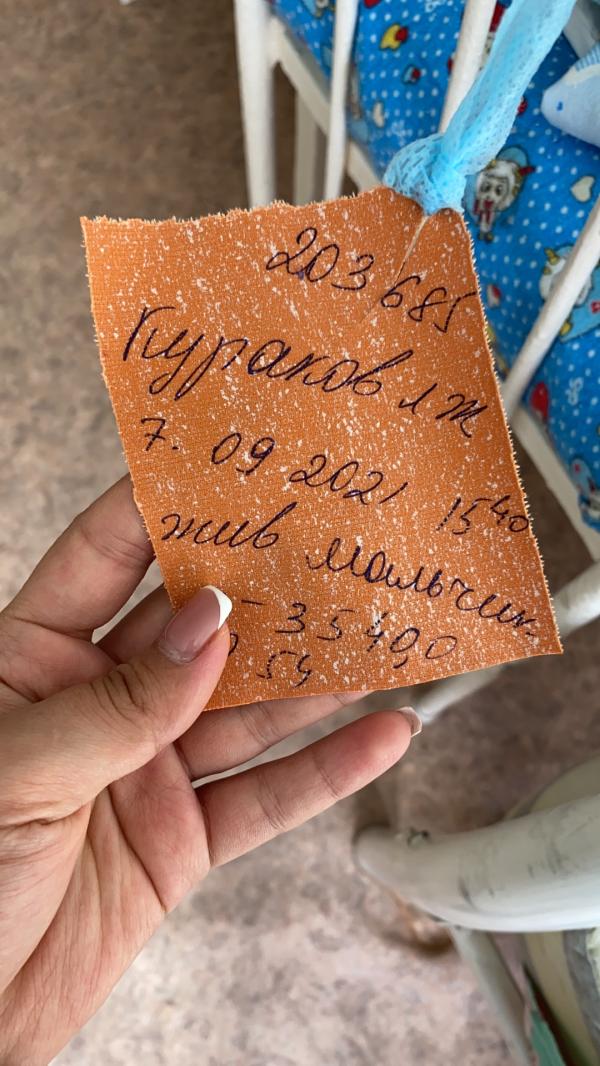 203 685
Кураков 1 ж
7. 09 2021 15 40
жив мальчик
– 35 40,0
54